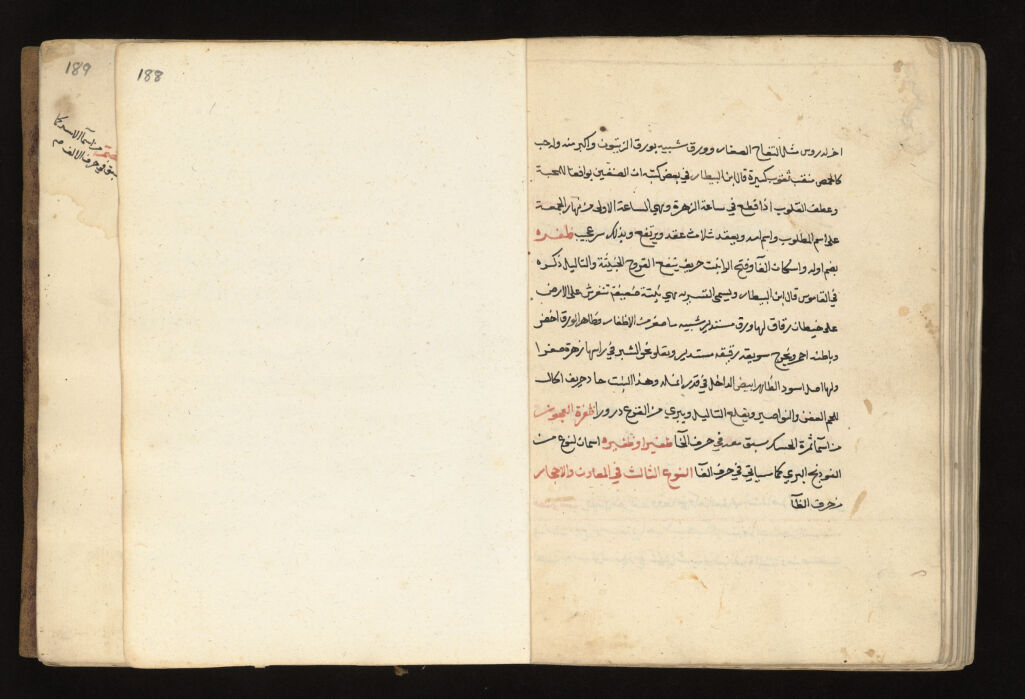 اخر له روس مثل التفاح الصغار وورق شبيه بورق الزيتون واكبر منه وله حب
كالحمص منقب ثقوب كثيرة قال ابن البيطار في بعض كتبه ان الصنفين يوافقا للمحبة
وعطف القلوب اذا قطع في ساعة الزهرة وهي الساعة الاولى من نهار الجمعة
على اسم المطلوب واسم امه ويعقد ثلاث عقد ويرفع وبذلك سر عجيب ظفره
بضم اوله واسكان الفا وفتح الرا نبت حريف ينفع القروح الخبيثة والثاليل ذكره
في القاموس قال ابن البيطار ويسمى النسرية وهي نبتة ضعيفة تنفرش على الارض
على خيطان رقاق لها ورق مستدير شبيه ما صغر من الاظفار وظاهر الورق اخضر
وباطنه احمر ويخرج سويقه رقيقه مستدير ويعلو نحو الشبر في راسها زهرة صفرا
ولها اصل اسود الظاهر ابيض الداخل في قدر انمله وهذا النبت حاد حريف اكال
للحم العفن والنواصير ويقلع الثاليل ويبري من القرع درورا ظفرة العجوز
من اسما ثمرة الحسك سبق معه في حرف الحا ظفيرا وظفيره اسمان لنوع من
الفودنج البري كما سياتي في حرف الفا النوع الثالث في المعادن والاحجار
من حرف الظا
188
189
من اسما الاسد كا
سبق في حرف الالف م